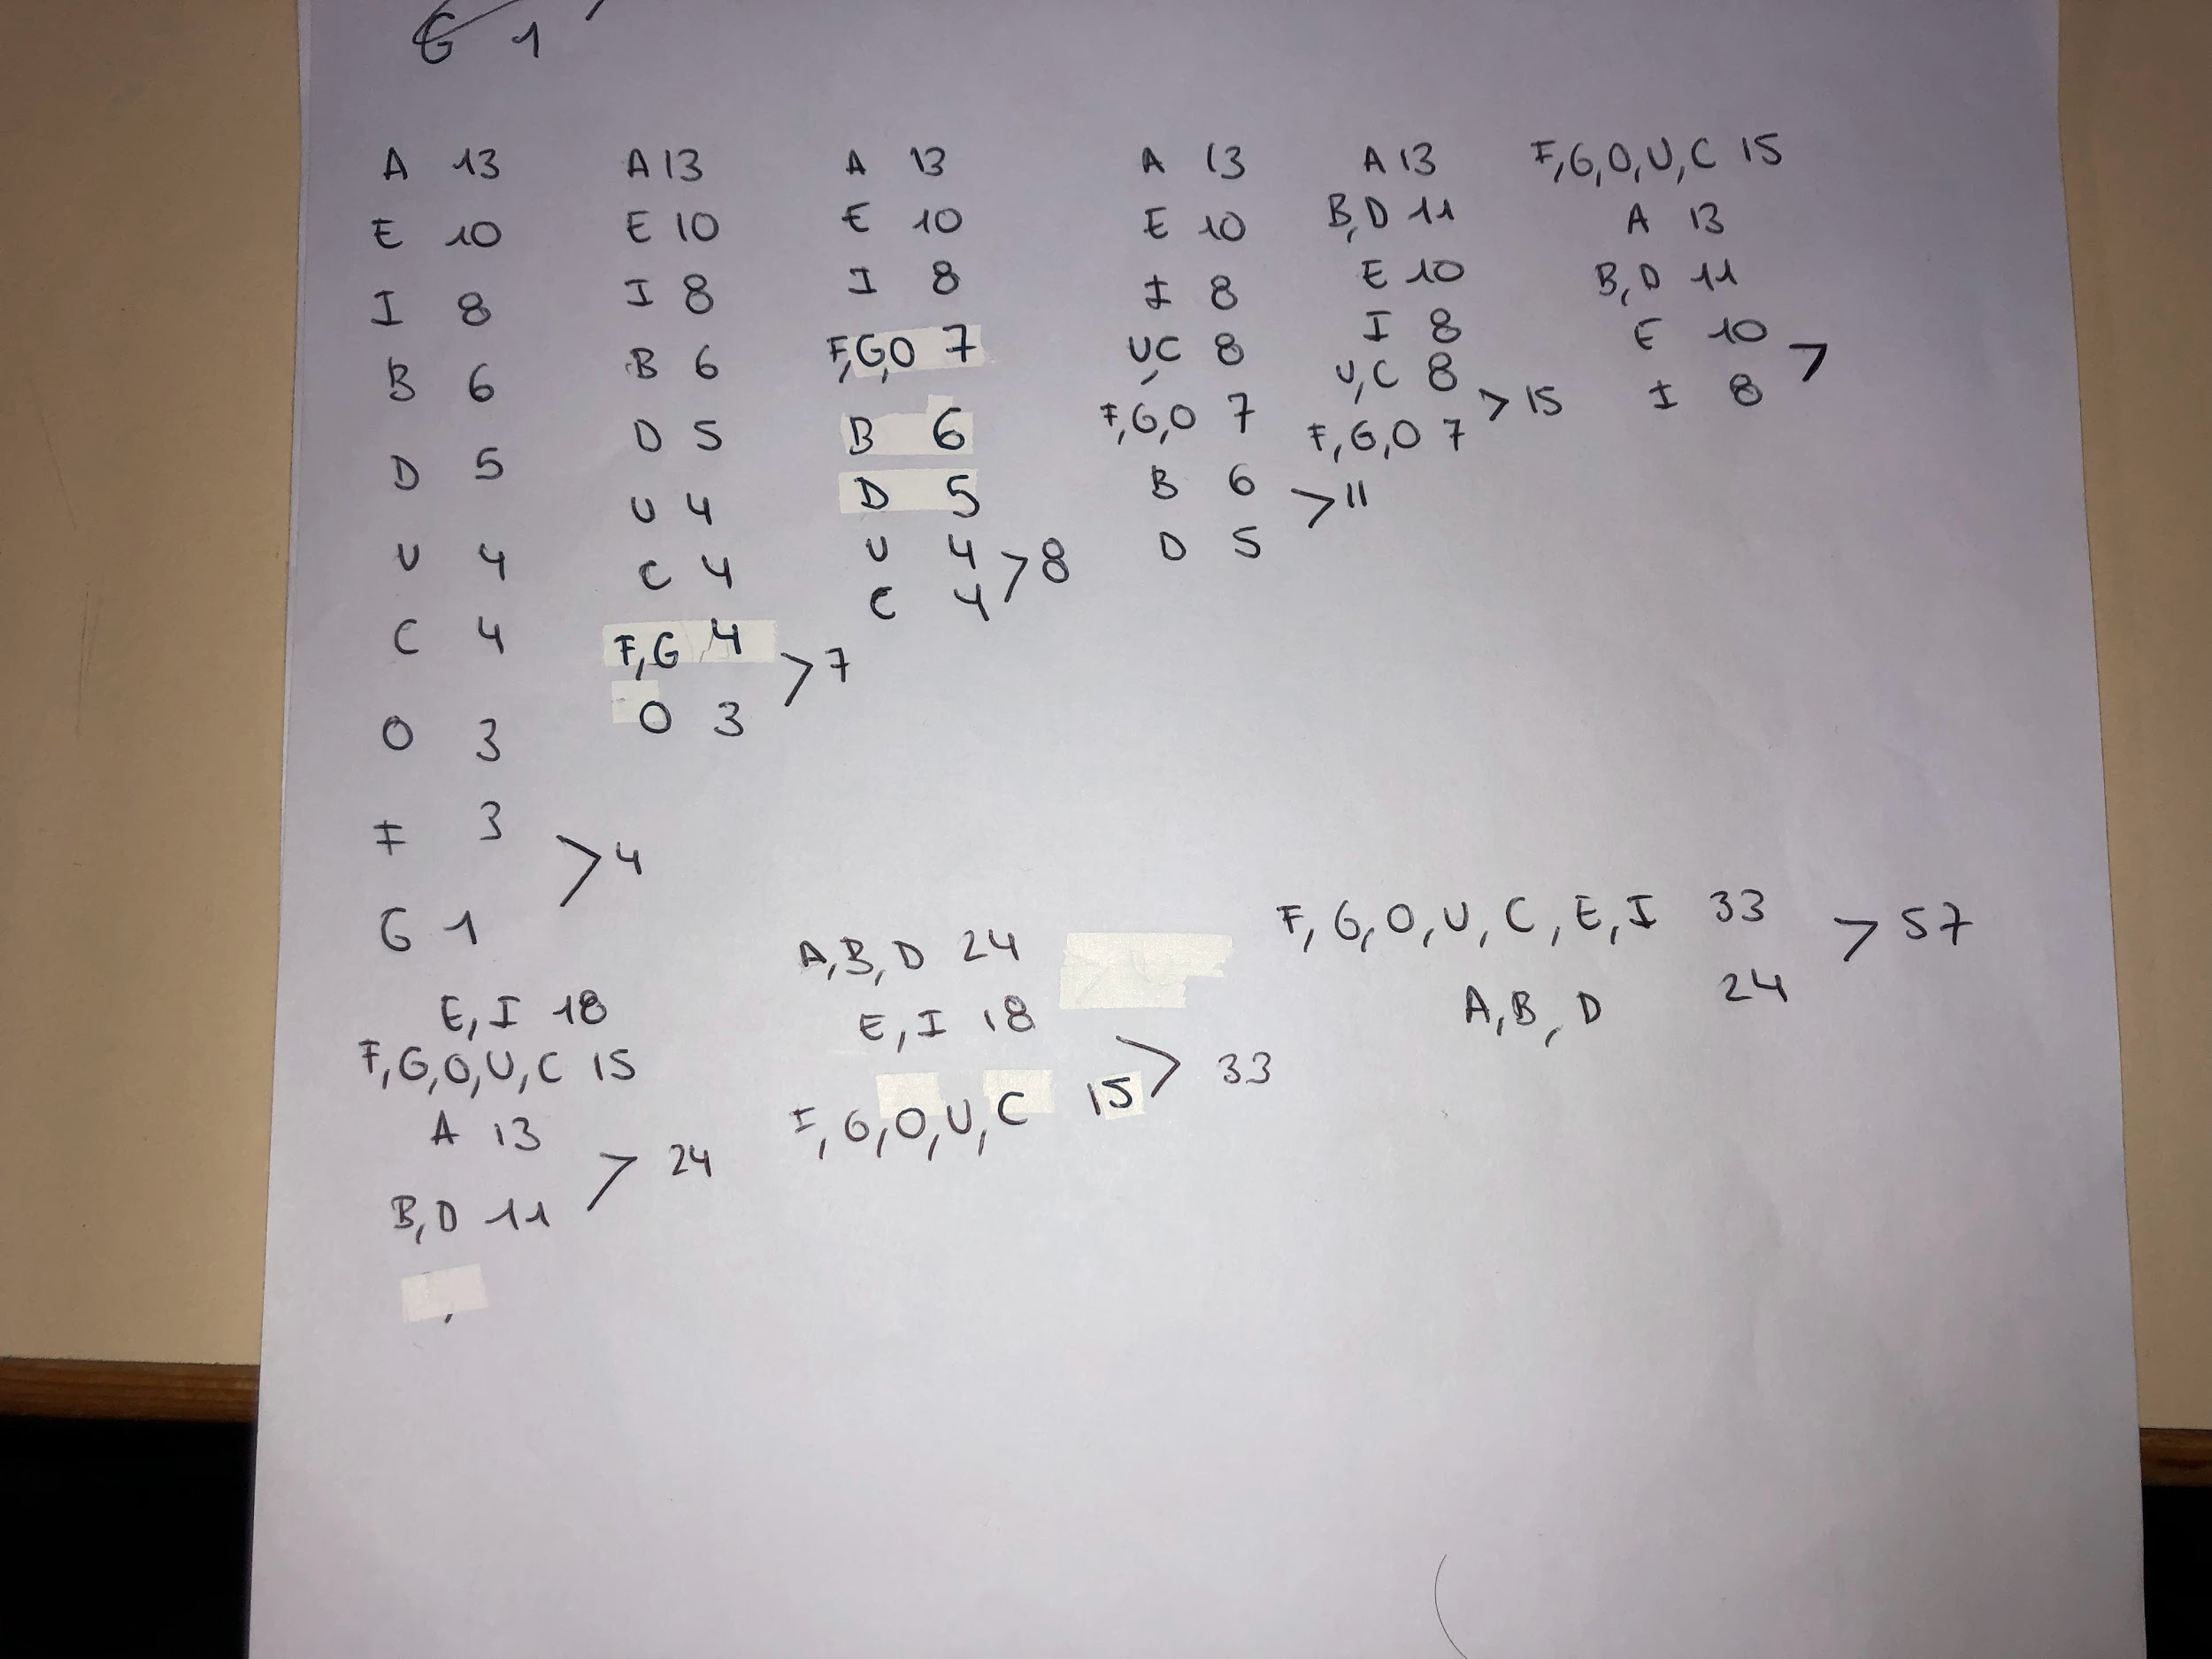 G 1
A 13
E 10
I 8
B 6
D 5
U 4
C 4
O 3
F 3
G 1
>4
A 13
E 10
I 8
B 6
D 5
U 4
C 4
F,G 4
O 3
>7
A 13
E 10
I 8
F,G,O 7
B 6
D 5
U 4
C 4
>8
A 13
E 10
I 8
U,C 8
F,G,O 7
B 6
D 5
>11
A 13
B,D 11
E 10
I 8
U,C 8
F,G,O 7
>15
F,G,O,U,C 15
A 13
B,D 11
E 10
I 8
>
E,I 18
F,G,O,U,C 15
A 13
B,D 11
>24
A,B,D 24
E,I 18
F,G,O,U,C 15
>33
F,G,O,U,C,E,I 33
A,B,D 24
>57